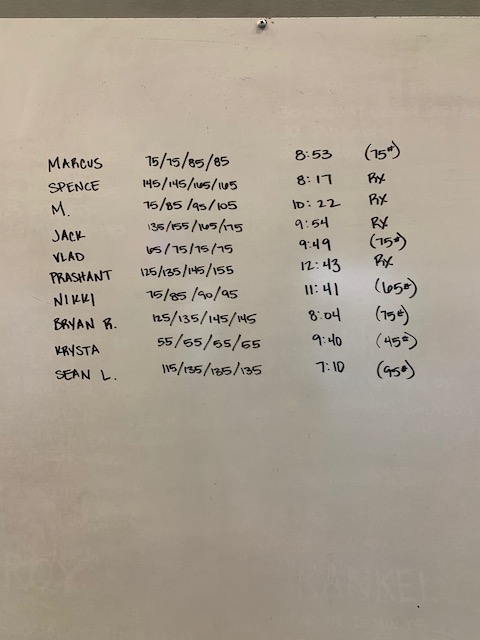 MARCUS 75/75/85/85 8:53 (75#)
SPENCE 145/145/165/165 8:17 RX
M. 75/85/95/105 10:22 RX
JACK 135/155/165/175 9:54 RX
VLAD 65/75/75/75 9:49 (75#)
PRASHANT 125/135/145/155 12:43 RX
NIKKI 75/85/90/95 11:41 (65#)
BRYAN R. 125/135/145/145 8:04 (75#)
KRYSTA 55/55/55/55 9:40 (45#)
SEAN L. 115/135/135/135 7:10 (95#)